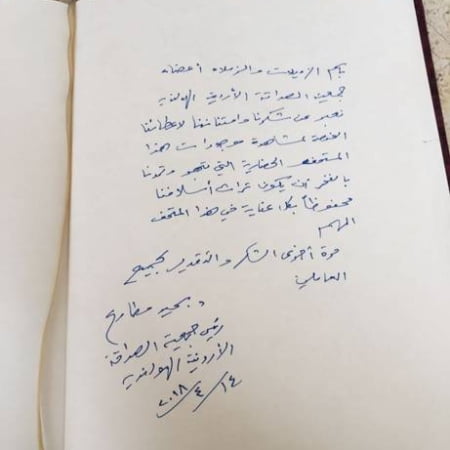 باسم الزميلات والزملاء أعضاء
جمعية الصداقة الأردنية الهولندية
نعبر عن شكرنا وامتناننا لإعطائنا
الفرصة لمشاهدة موجودات هذا
المتحف الحضارية التي
بالفخر أن يكون تراث أسلافنا
محفوظاً بكل عناية في هذا المتحف
المهم
مرة أخرى الشكر والتقدير لجميع
العاملين
د.
رئيس جمعية الصداقة
الأردنية الهولندية
١٤/٤/٢٠١٨